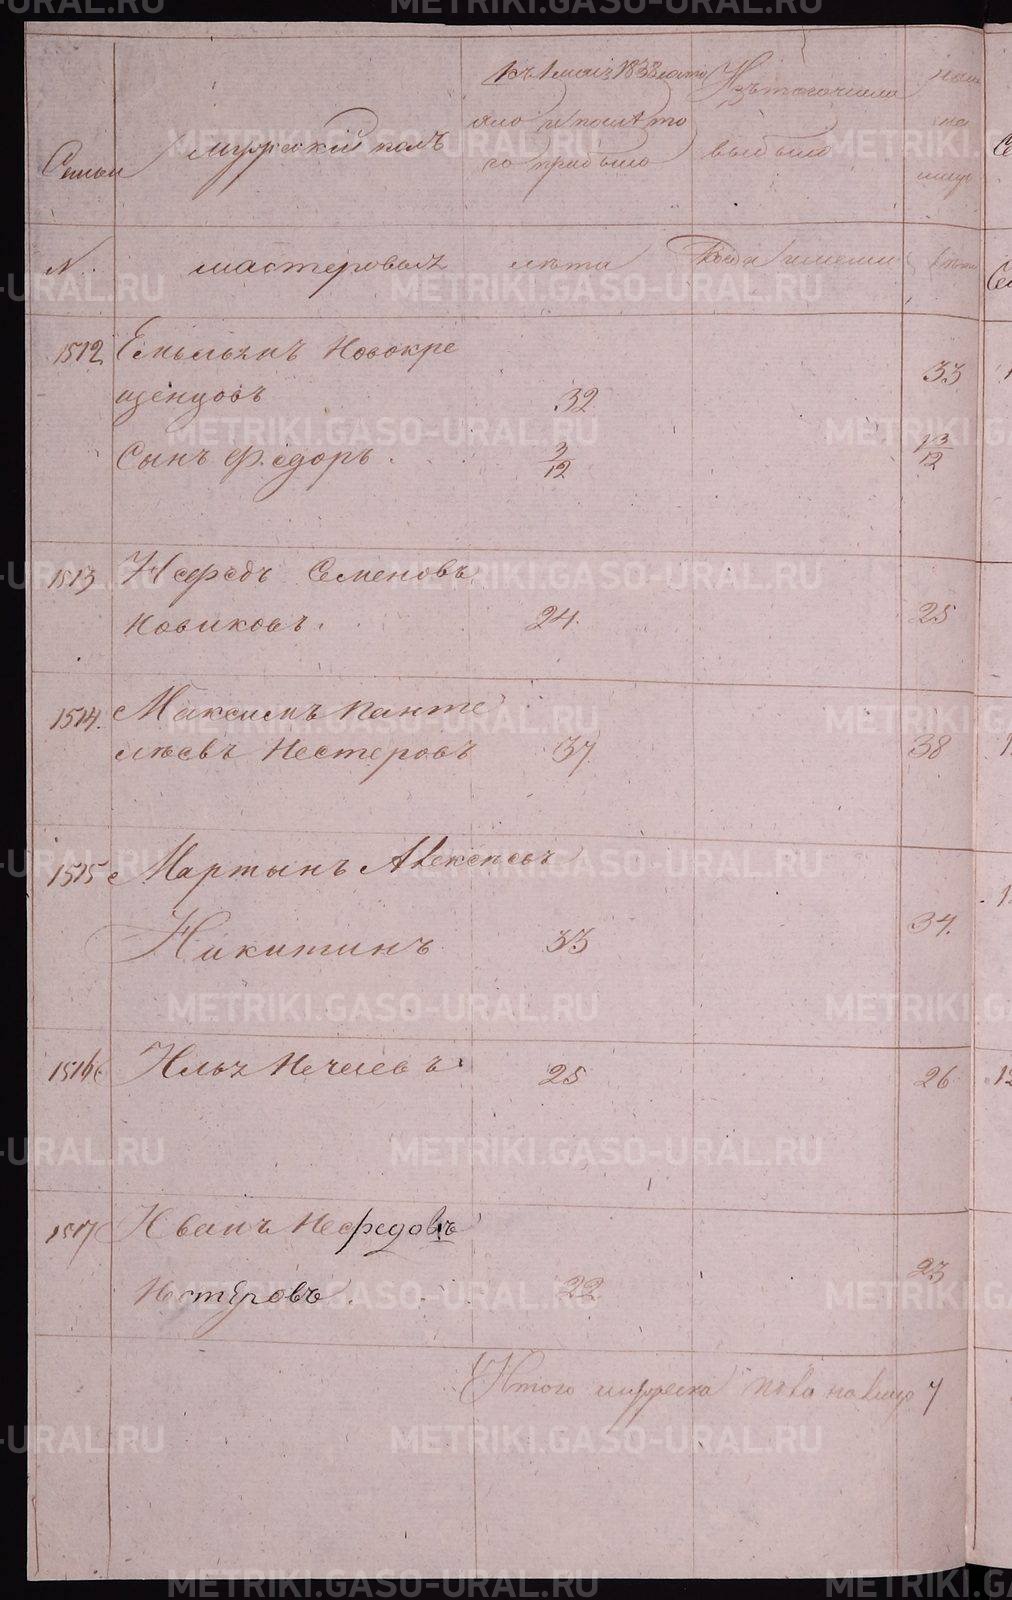 Семьи
мужскій полъ
къ 1 маія 1833 состо
яло и послѣ то
го прибыло
Изъ того числа
выбыло
на
лицо
№
мастеровыхъ
лѣта
Когда именно
лѣта
1512 Емельянъ Новокре
щенцовъ 32 33
Сынъ Федоръ. 3/12 1 3/12
1513 Нефедъ Семеновъ
Новиковъ. 24. 25
1514. Максимъ Панте
лѣевъ Нестеровъ 37 38
1515 Мартынъ Алексѣевъ
Никитинъ 33 34.
1516 Илья Нечаевъ. 25 26
1517 Иванъ Нефедовъ
Нестеровъ. 22 23
Итого мужеска пола на лицо 7
METRIKI.GASO-URAL.RU